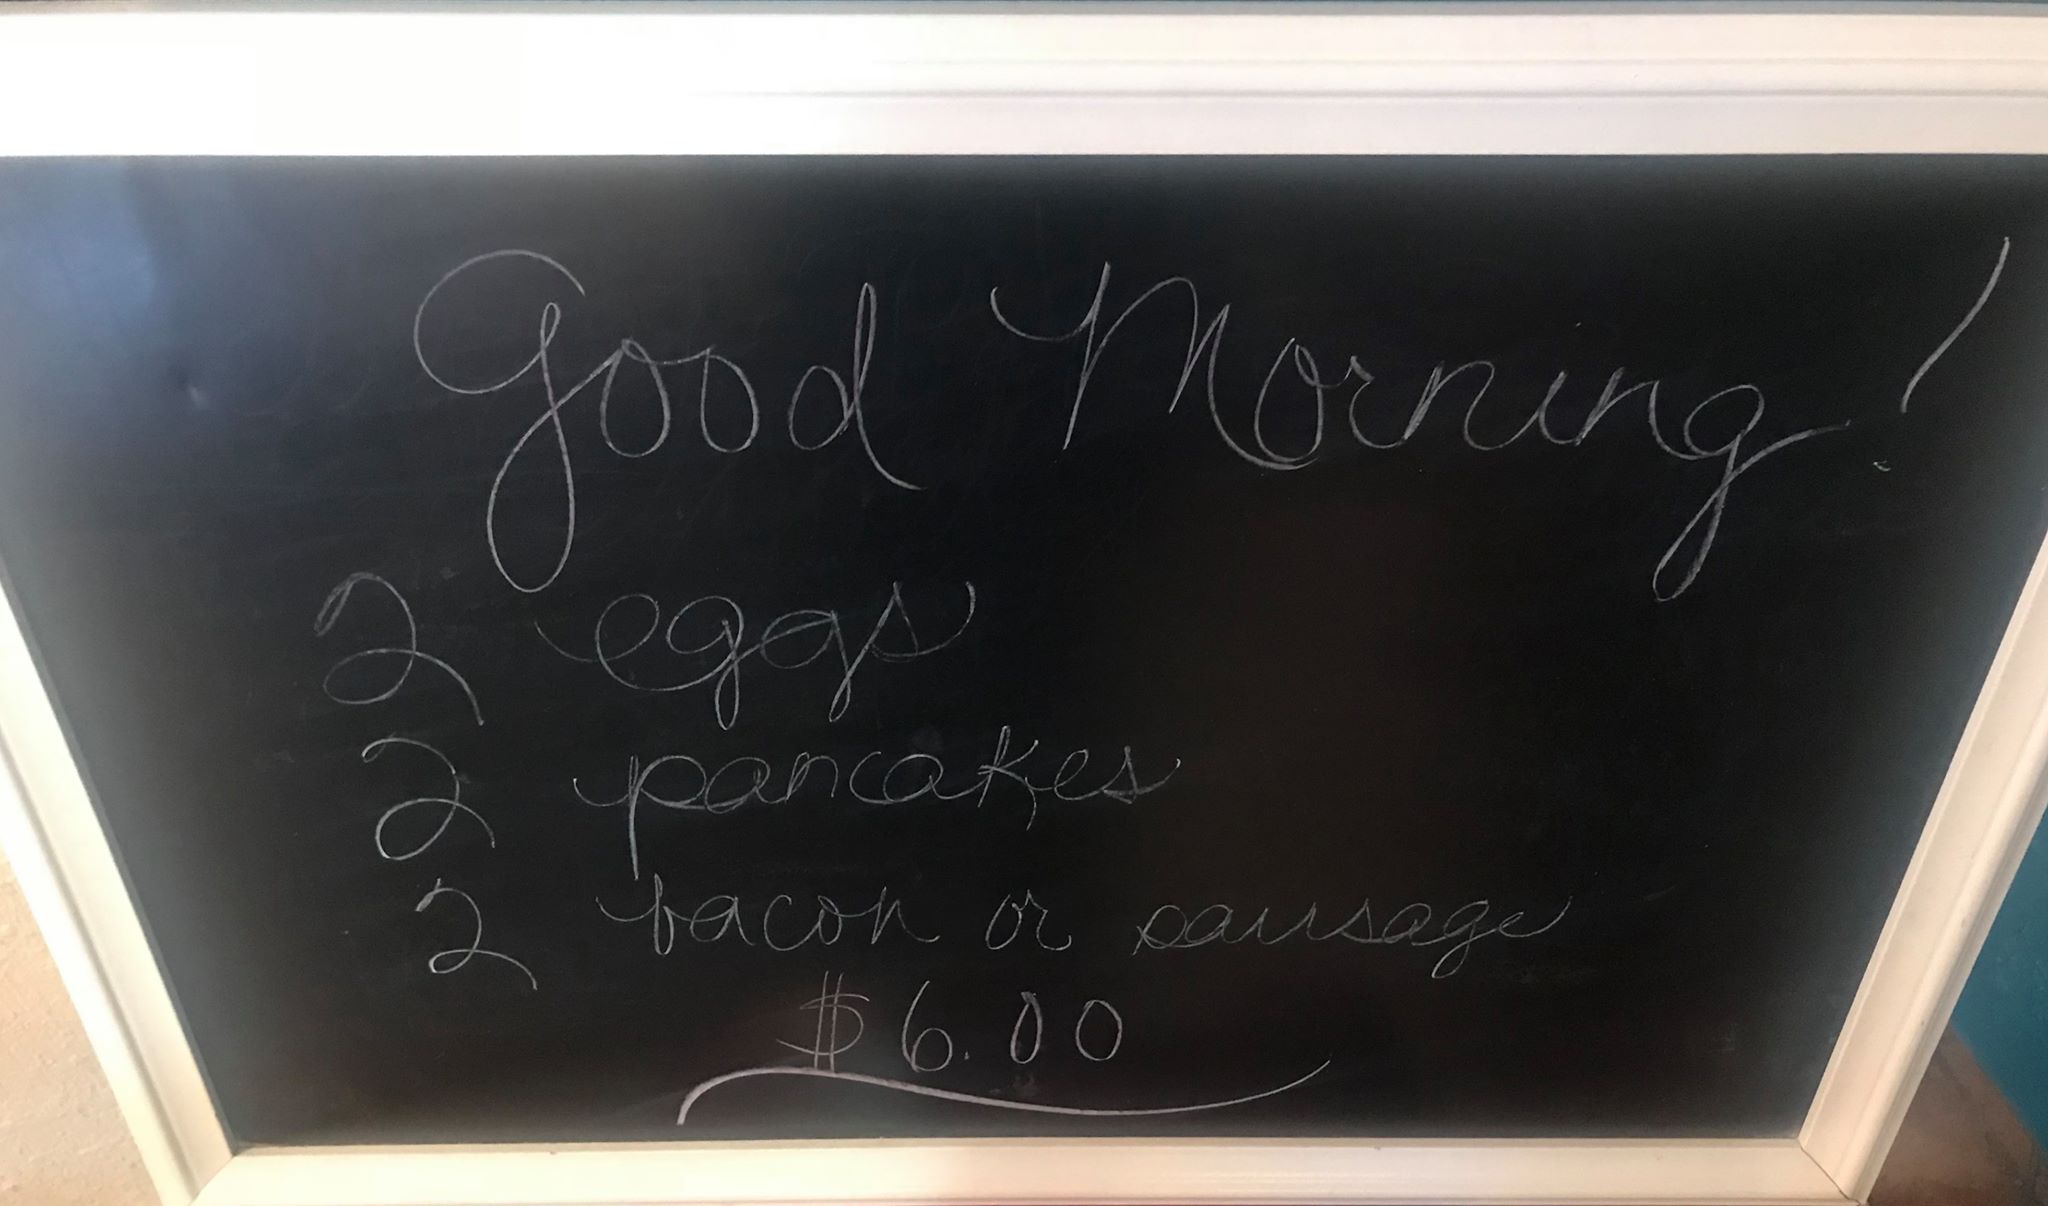 Good Morning!
2 eggs
2 pancakes
2 bacon or sausage
$6.00